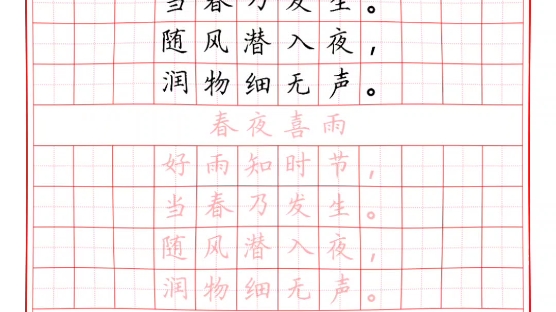 当春乃发生。
随风潜入夜，
润物细无声。
春夜喜雨
好雨知时节，
当春乃发生。
随风潜入夜，
润物细无声。